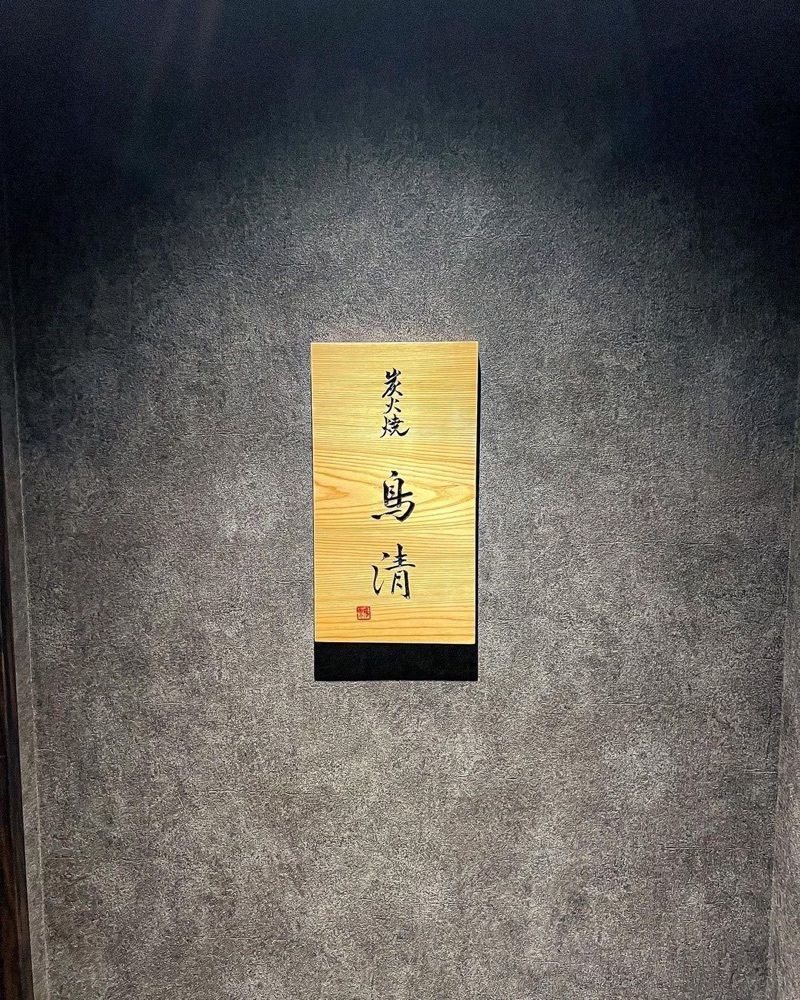 炭火焼
鳥清